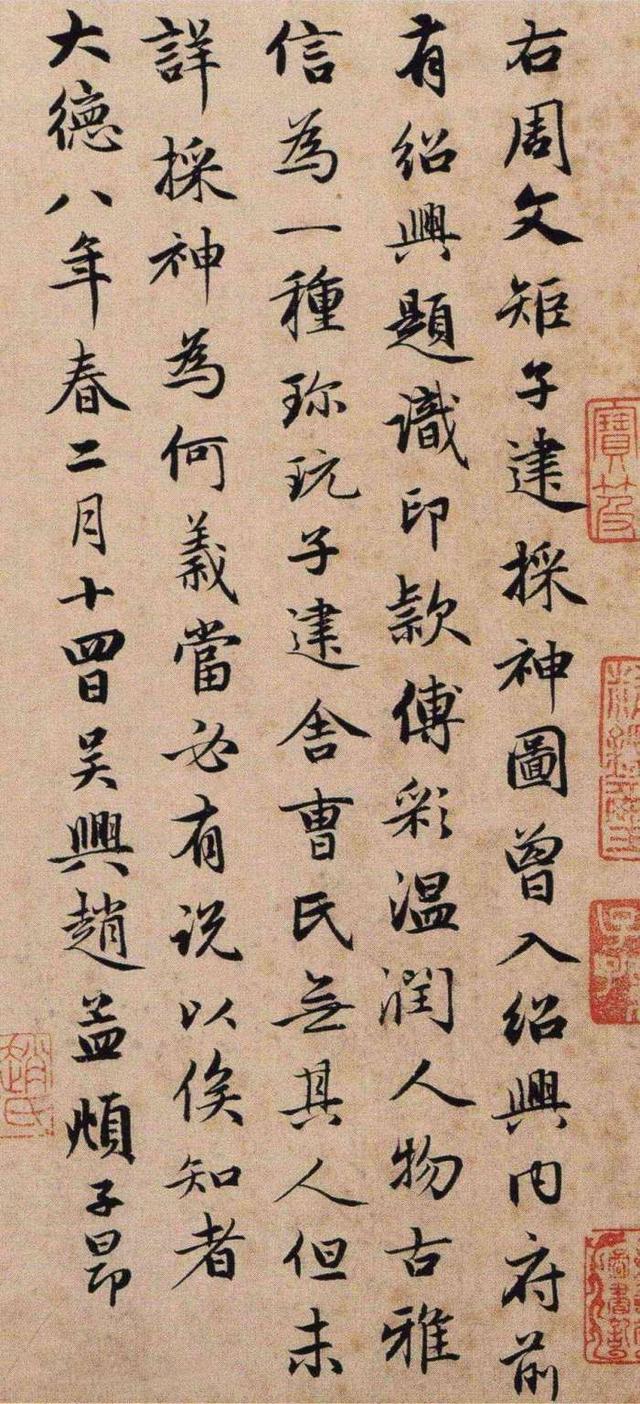 右周文矩子建採神圖曾入紹興内府前
有紹興題識印款傅彩温潤人物古雅
信為一種珎玩子建舍曹氏無其人但未
詳採神為何義當必有説以俟知者
大德八年春二月十四日吴興趙孟頫子昂
寶笈
趙氏